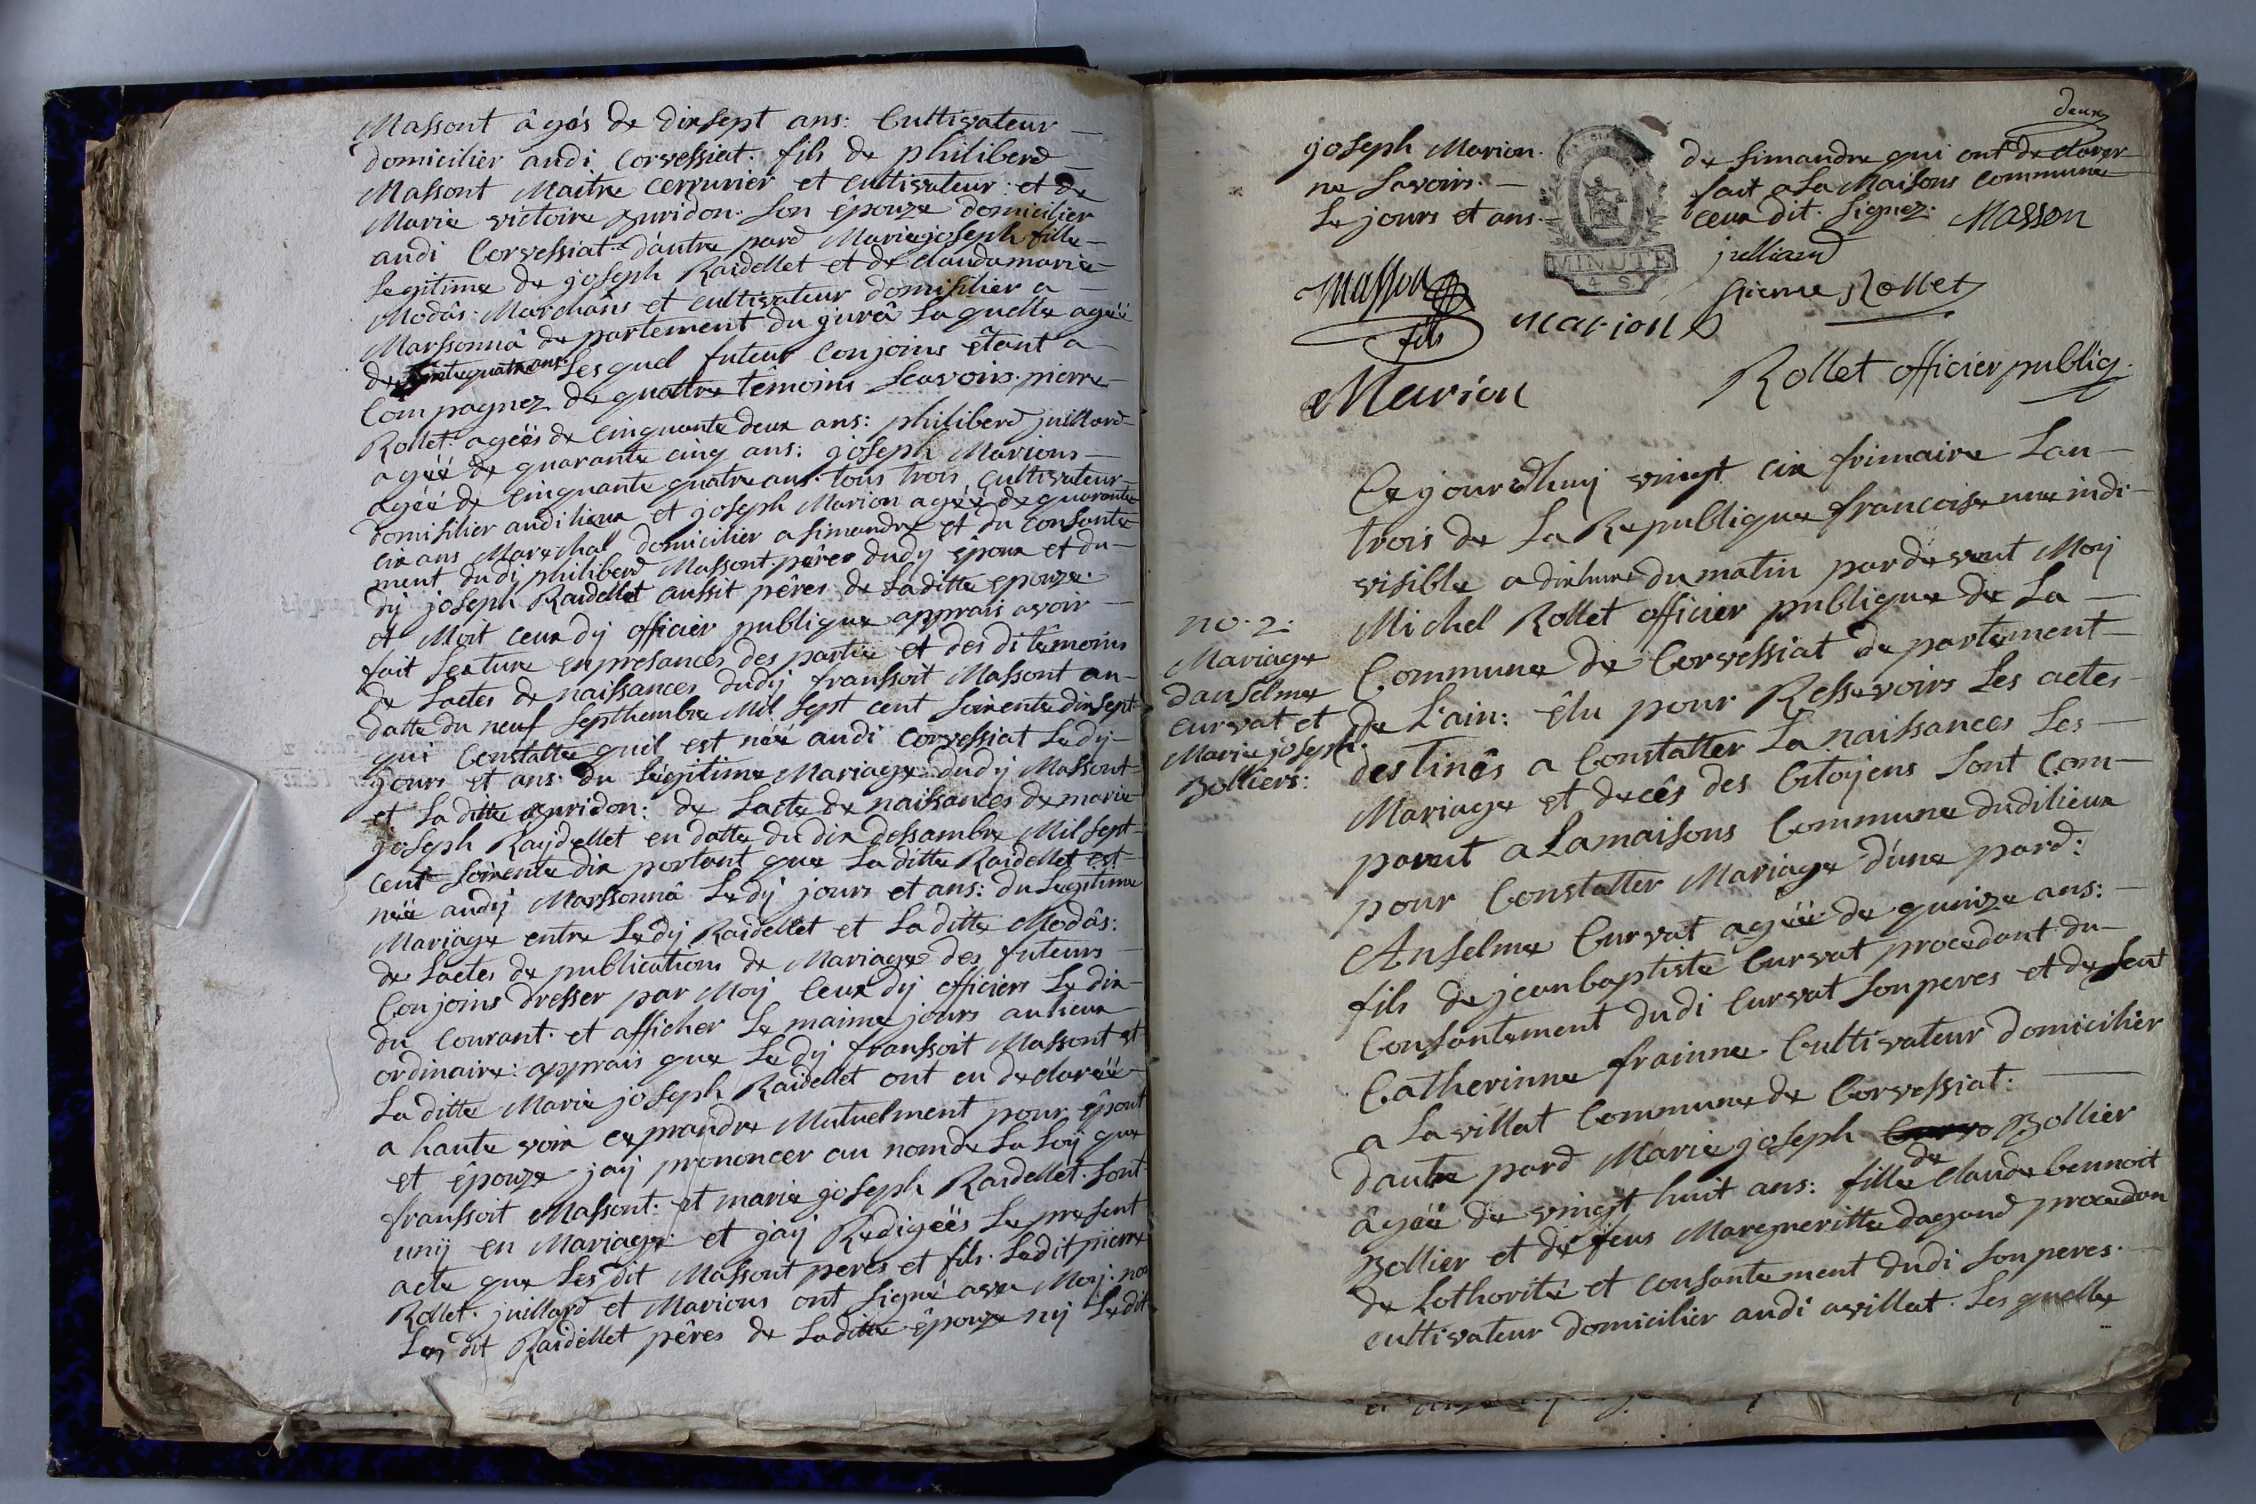 Massont âgés de dixsept ans: Cultivateur
domicilier audi Corvessiat. fils de philiberd
Massont Maitre cerrurier et cultivateur: et de
Marie victoire puridon. Son êpouze domicilier
audi Corvessiat d'autre pard Marie joseph fille
legitime de joseph Raidellet et de claudamarie
Modâs. Marchâns et cultivateur domisilier a
Marssonnâ departement du jurâ Laquelle agéé
de quatre ans. Lesquel futeur Conjoins êtant a
Compagnez de quattre têmoins Scavoirs. pierre
Rollet. agéés de Cinquante deux ans: philiberd juillard
agéé de quarante cinq ans: joseph Marions
agéé de Cinquante quatre ans. tous trois Cultivateur
domisilier audi lieux et joseph Marion agéé de quarante
cix ans Marechal domicilier a simandre et du Consante
ment dudi philiberd Massont. pêres dudy êpoux et du
dij joseph Raidellet aussit pêres de Laditte epouze.
et Moit ceux dij officier publique apprais avoir
fait Lecture enpresances des partie et des di têmoins
de Lactes de naissances dudij franssoit Massont an
datte du neuf Septhembre Mil Sept cent Soixente dixsept
qui Constatte quil est néé audi Corvessiat Ledij
jours et ans. du Légitime Mariage dudij Massont
et Laditte puridon: de Lacte de naissances de marie
joseph Raydellet en datte du dix dessambre Mil Sept
cent Soixente dix portant que Laditte Raidellet est
néé audij Marssonnâ Ledij jours et ans: du Legitime
Mariage entre Ledij Raidellet et Laditte Modâs:
de Lactes de publications de Mariage des futeurs
Conjoins dresser par Moij Ceux dij officiers Le dix
du Courant. et afficher Le maime jours aulieux
ordinaire: apprais que Ledij franssoit Massont et
Laditte Marie joseph Raidellet ont eu declaréé
a haute voix ce prandre Mutuelment pour êpout
et êpouze jaij prononcer au nomde La Loij que
franssoit Massont: et marie joseph Raidellet. Sont
unij en Mariage et jaij Rédigéés Le present
acte que Les dit Massont peres et fils. Ledit pierre
Rollet. juillard et Marions ont Signé avec Moij. non
Les dit Raidellet pêres de Laditte êpouze nij Ledit
deux
joseph Marion
ne Savoirs.
Le jours et ans
de simandre qui ont declarer
fait a La Maisons Commune
ceux dit. Signez.
MINUTE
4 S
Masson
julliard
Masson
fils
pierre Rollet
marion
Marion
Rollet officier publiq.
no. 2.
Mariage
danselme
curvat et
Marie joseph
Bolliers:
Ce jourdhuij vingt cix frimaire Lan
trois de La Republique francoise une indi
visible a dix heure du matin pardevent Moij
Michel Rollet officier publique de La
Commune de Corvessiat departement
de L'ain: êlu pour Ressevoirs Les actes
destinês a Constatter La naissances Les
Mariage et decês des Citoyens Sont Com
parut a Lamaisons Commune dudilieux
pour Constatter Mariage d'une pard:
Anselme Curvat agéé de quinze ans:
fils de jeanbaptiste Curvat procedant du
Consantement dudi Curvat Sonperes et de feut
Catherinne frainne Cultivateur domicilier
a Lavillat Commune de Corvessiat:
dautre pard Marie joseph Curvo Bollier
âgéé de vingt huit ans: fille de Claude bennoit
Bollier et de feus Marguerritte dagand procedan
de Lothorité et consantement dudi Sonperes.
cultivateur domicilier audi avillat. Lesquelle